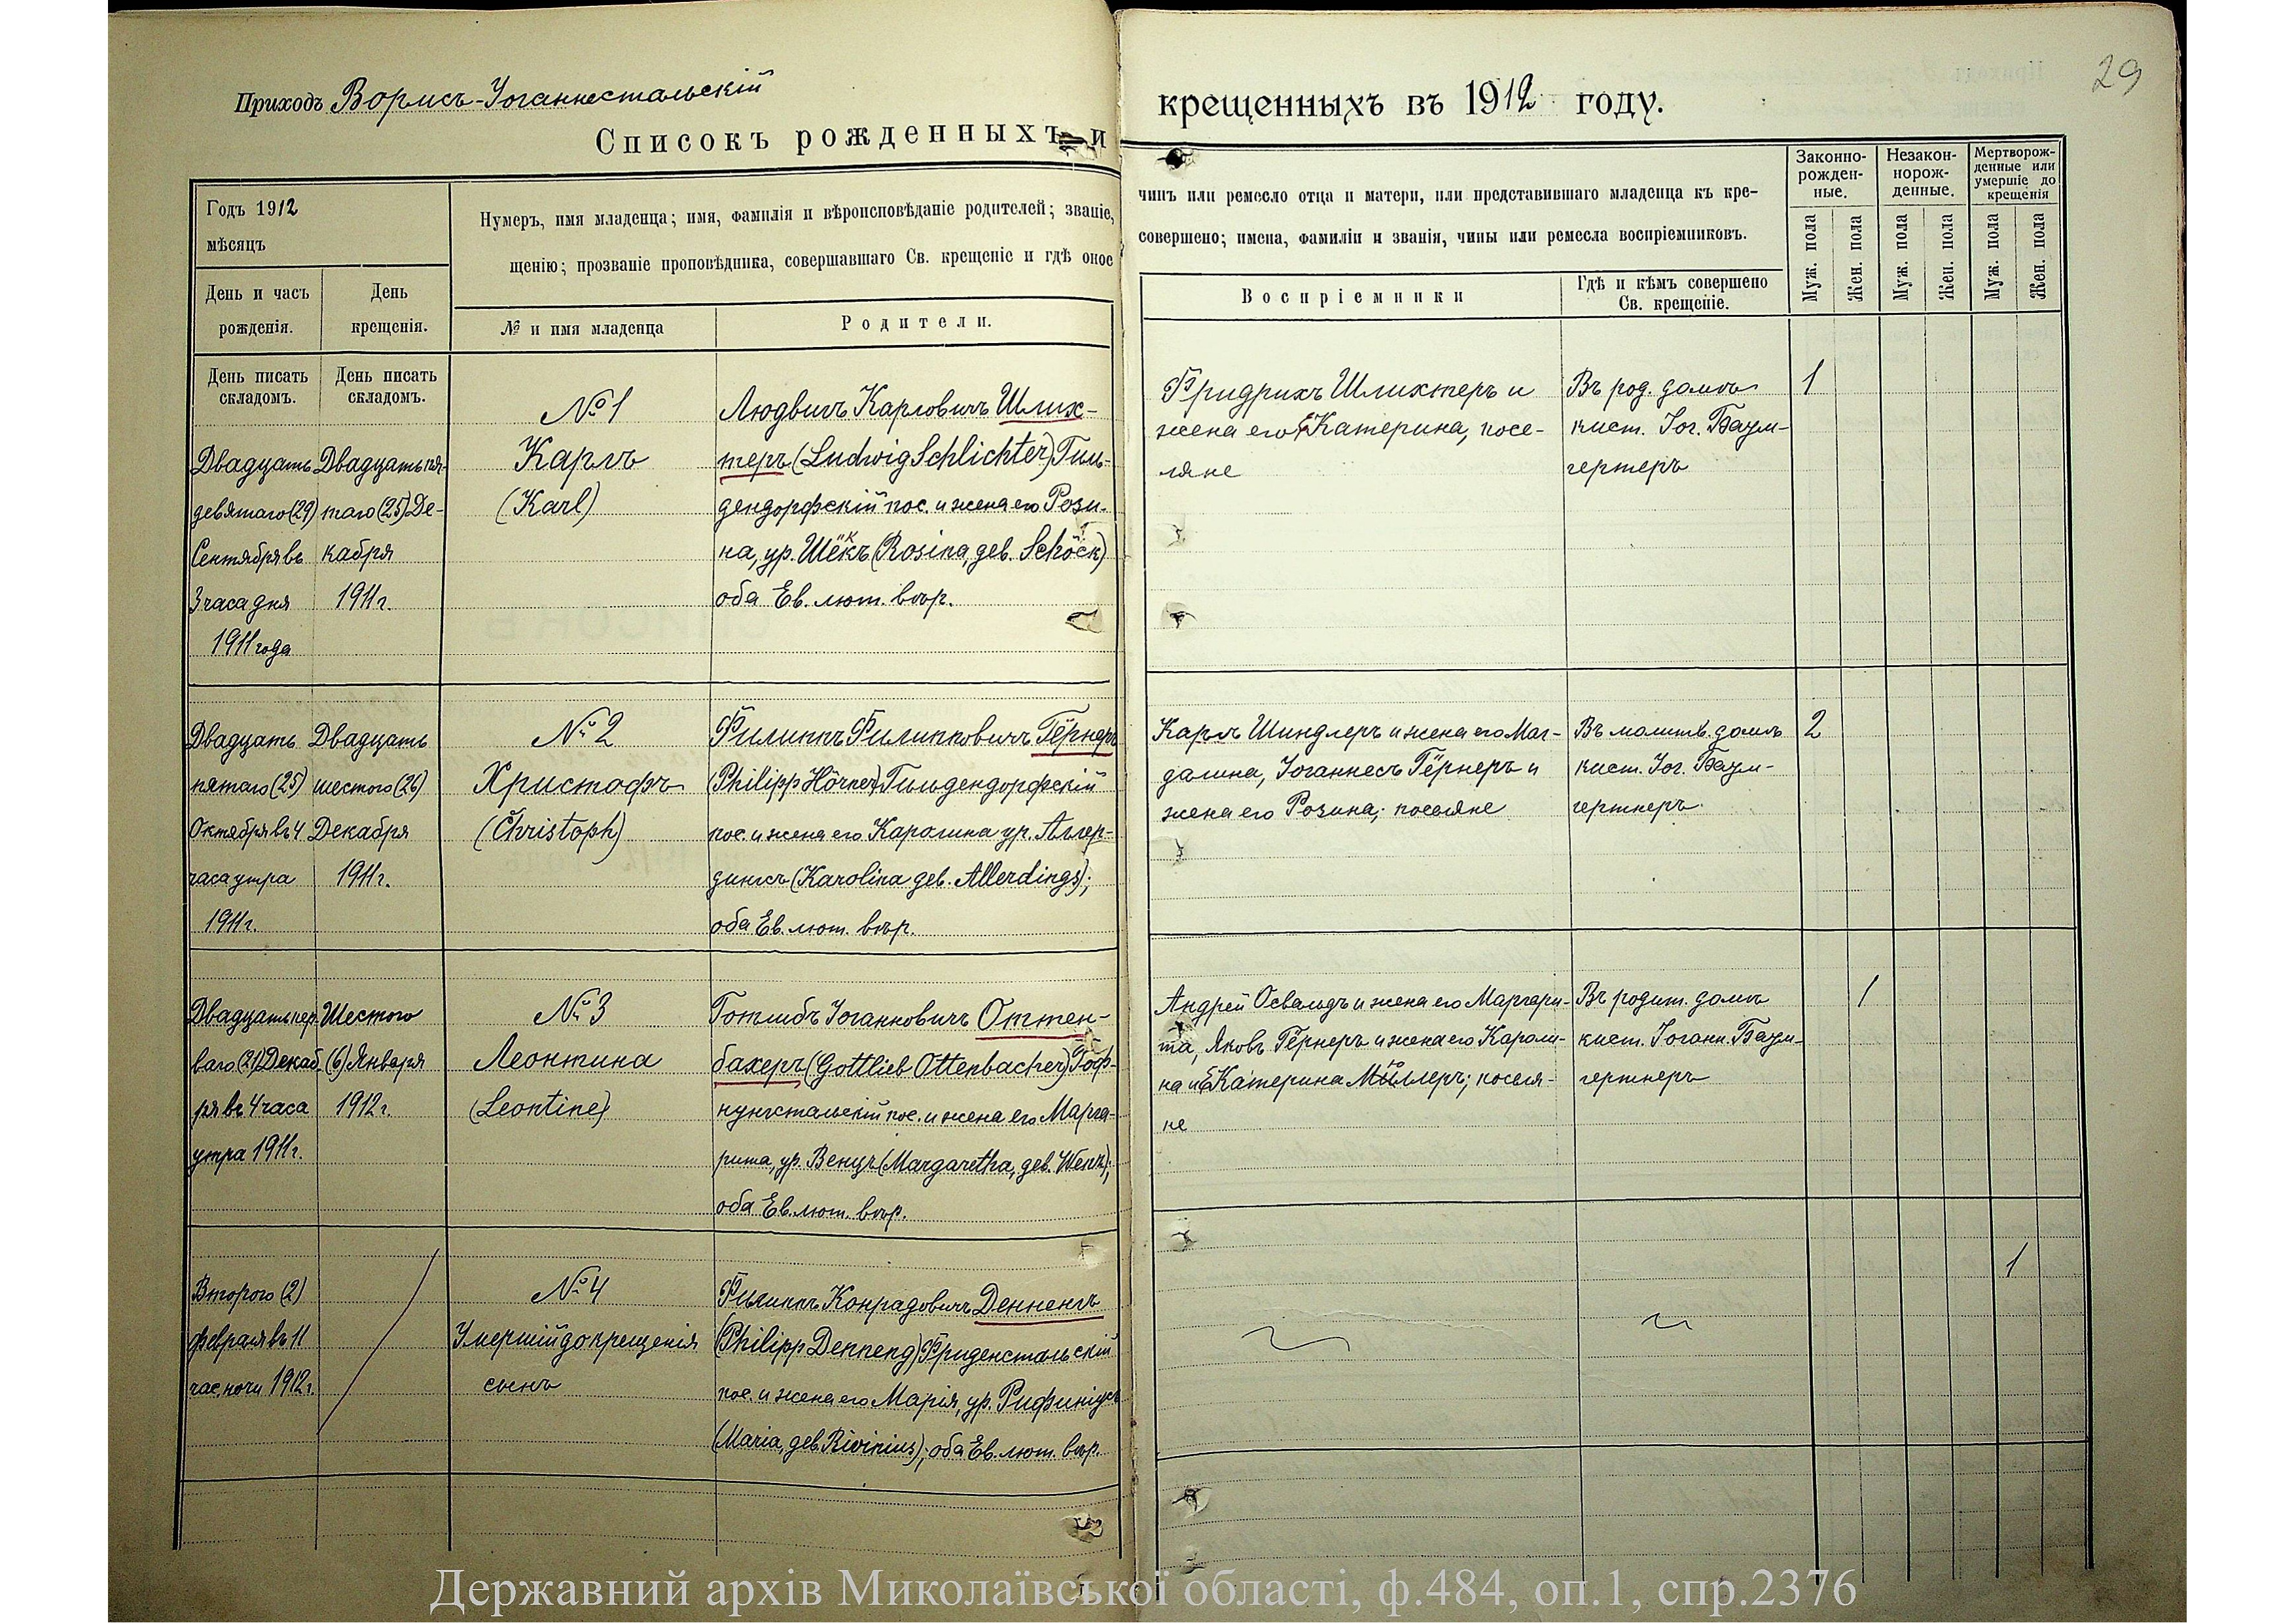 Приходъ Вормсъ-Іоганнестальскій
Списокъ рожденныхъ и
Годъ 1912
мѣсяцъ
Нумеръ, имя младенца; имя, фамилія и вѣроисповѣданіе родителей; званіе,
щенію; прозваніе проповѣдника, совершавшаго Св. крещеніе и гдѣ оное
День и часъ
рожденія.
День
крещенія.
№ и имя младенца
Родители.
День писать
складомъ.
День писать
складомъ.
Двадцать
девятаго (29)
Сентября въ
3 часа дня
1911 года
Двадцать пя-
таго (25) Де-
кабря
1911 г.
№ 1
Карлъ
(Karl)
Людвигъ Карловичъ Шлих-
теръ (Ludwig Schlichter) Гиль-
дендорфскій пос. и жена его Рози-
на, ур. Шёкъ (Rosina, geb. Schöck)
оба Ев. лют. вѣр.
Двадцать
пятаго (25)
Октября въ 4
часа утра
1911 г.
Двадцать
шестого (26)
Декабря
1911 г.
№ 2
Христофъ
(Christoph)
Филиппъ Филипповичъ Гёрнеръ
(Philipp Hörner) Гильдендорфскій
пос. и жена его Каролина ур. Аллер-
дингсъ (Karolina geb. Allerdings);
оба Ев. лют. вѣр.
Двадцать пер-
ваго (21) Декаб-
ря въ 4 часа
утра 1911 г.
Шестого
(6) Января
1912 г.
№ 3
Леонтина
(Leontine)
Готлибъ Іоганновичъ Оттен-
бахеръ (Gottlieb Ottenbacher) Гоф-
нунгстальскій пос. и жена его Марга-
рита, ур. Венцъ (Margaretha, geb. Wenz);
оба Ев. лют. вѣр.
Второго (2)
февраля въ 11
час. ночи 1912 г.
№ 4
Умершій до крещенія
сынъ
Филиппъ Конрадовичъ Денненгъ
(Philipp Denneng) Фриденстальскій
пос. и жена его Марія, ур. Рифиніусъ
(Maria, geb. Rivinius); оба Ев. лют. вѣр.
29
крещенныхъ въ 1912 году.
чинъ или ремесло отца и матери, или представившаго младенца къ кре-
совершено; имена, фамиліи и званія, чины или ремесла воспріемниковъ.
Воспріемники
Гдѣ и кѣмъ совершено
Св. крещеніе.
Законно-
рожден-
ные.
Незакон-
норож-
денные.
Мертворож-
денные или
умершіе до
крещенія
Муж. пола
Жен. пола
Муж. пола
Жен. пола
Муж. пола
Жен. пола
Фридрихъ Шлихтеръ и
жена его Катерина, посе-
ляне
Въ род. домѣ
кист. Іог. Баум-
гертеръ
1
Карлъ Шиндлеръ и жена его Маг-
далина, Іоганнесъ Гёрнеръ и
жена его Розина; поселяне
Въ молитв. домѣ
кист. Іог. Баум-
гертнеръ
2
Андрей Освальдъ и жена его Маргари-
та, Яковъ Гёрнеръ и жена его Кароли-
на и Катерина Мюллеръ; поселя-
не
Въ родит. домѣ
кист. Іоганн. Баум-
гертнеръ
1
1
Державний архів Миколаївської області, ф.484, оп.1, спр.2376